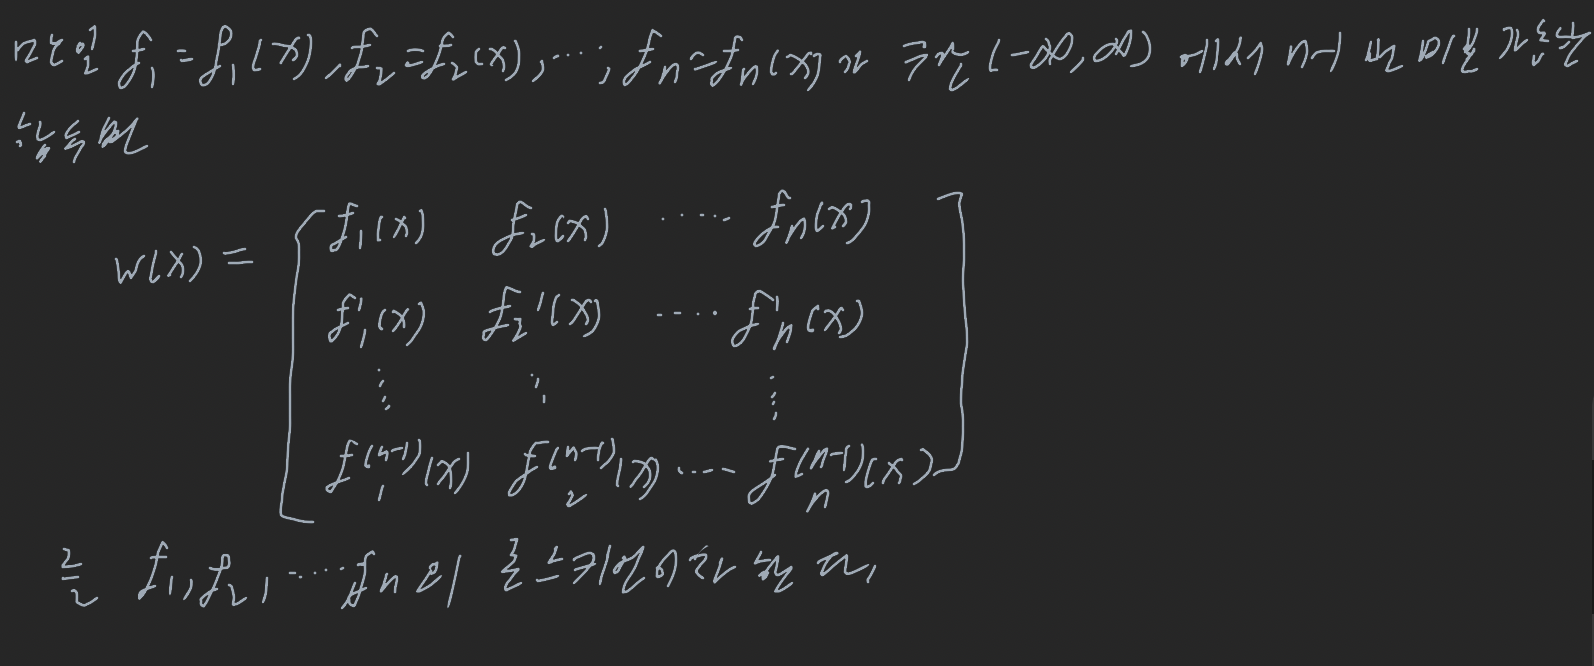 만일 f₁=f₁(x), f₂=f₂(x), ..., fₙ=fₙ(x)가 구간 (-∞, ∞) 에서 n-1 번 미분 가능한
함수면
w(x) = [ f₁(x) f₂(x) ····· fₙ(x)
f₁'(x) f₂'(x) ····· fₙ'(x)
⋮ ⋱ ⋮
f₁⁽ⁿ⁻¹⁾(x) f₂⁽ⁿ⁻¹⁾(x) ····· fₙ⁽ⁿ⁻¹⁾(x) ]
를 f₁, f₂, ····· fₙ의 론스키언이라 한다.